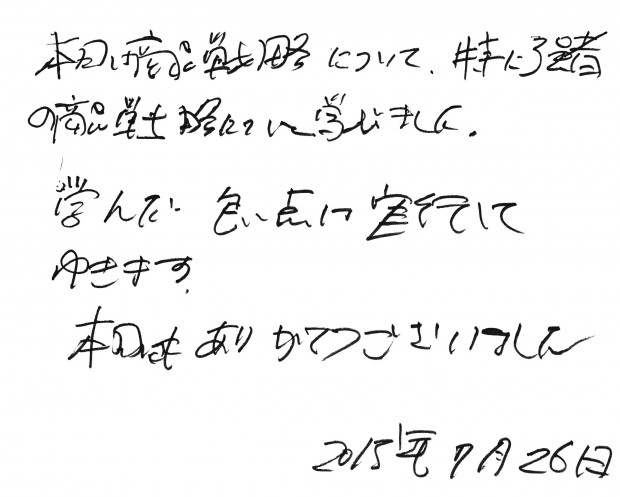 本日は商品戦略について、特に強者
の商品戦略について学びました。
学んだ 良い点は実行して
ゆきます。
本日はありがとうございました
2015年7月26日